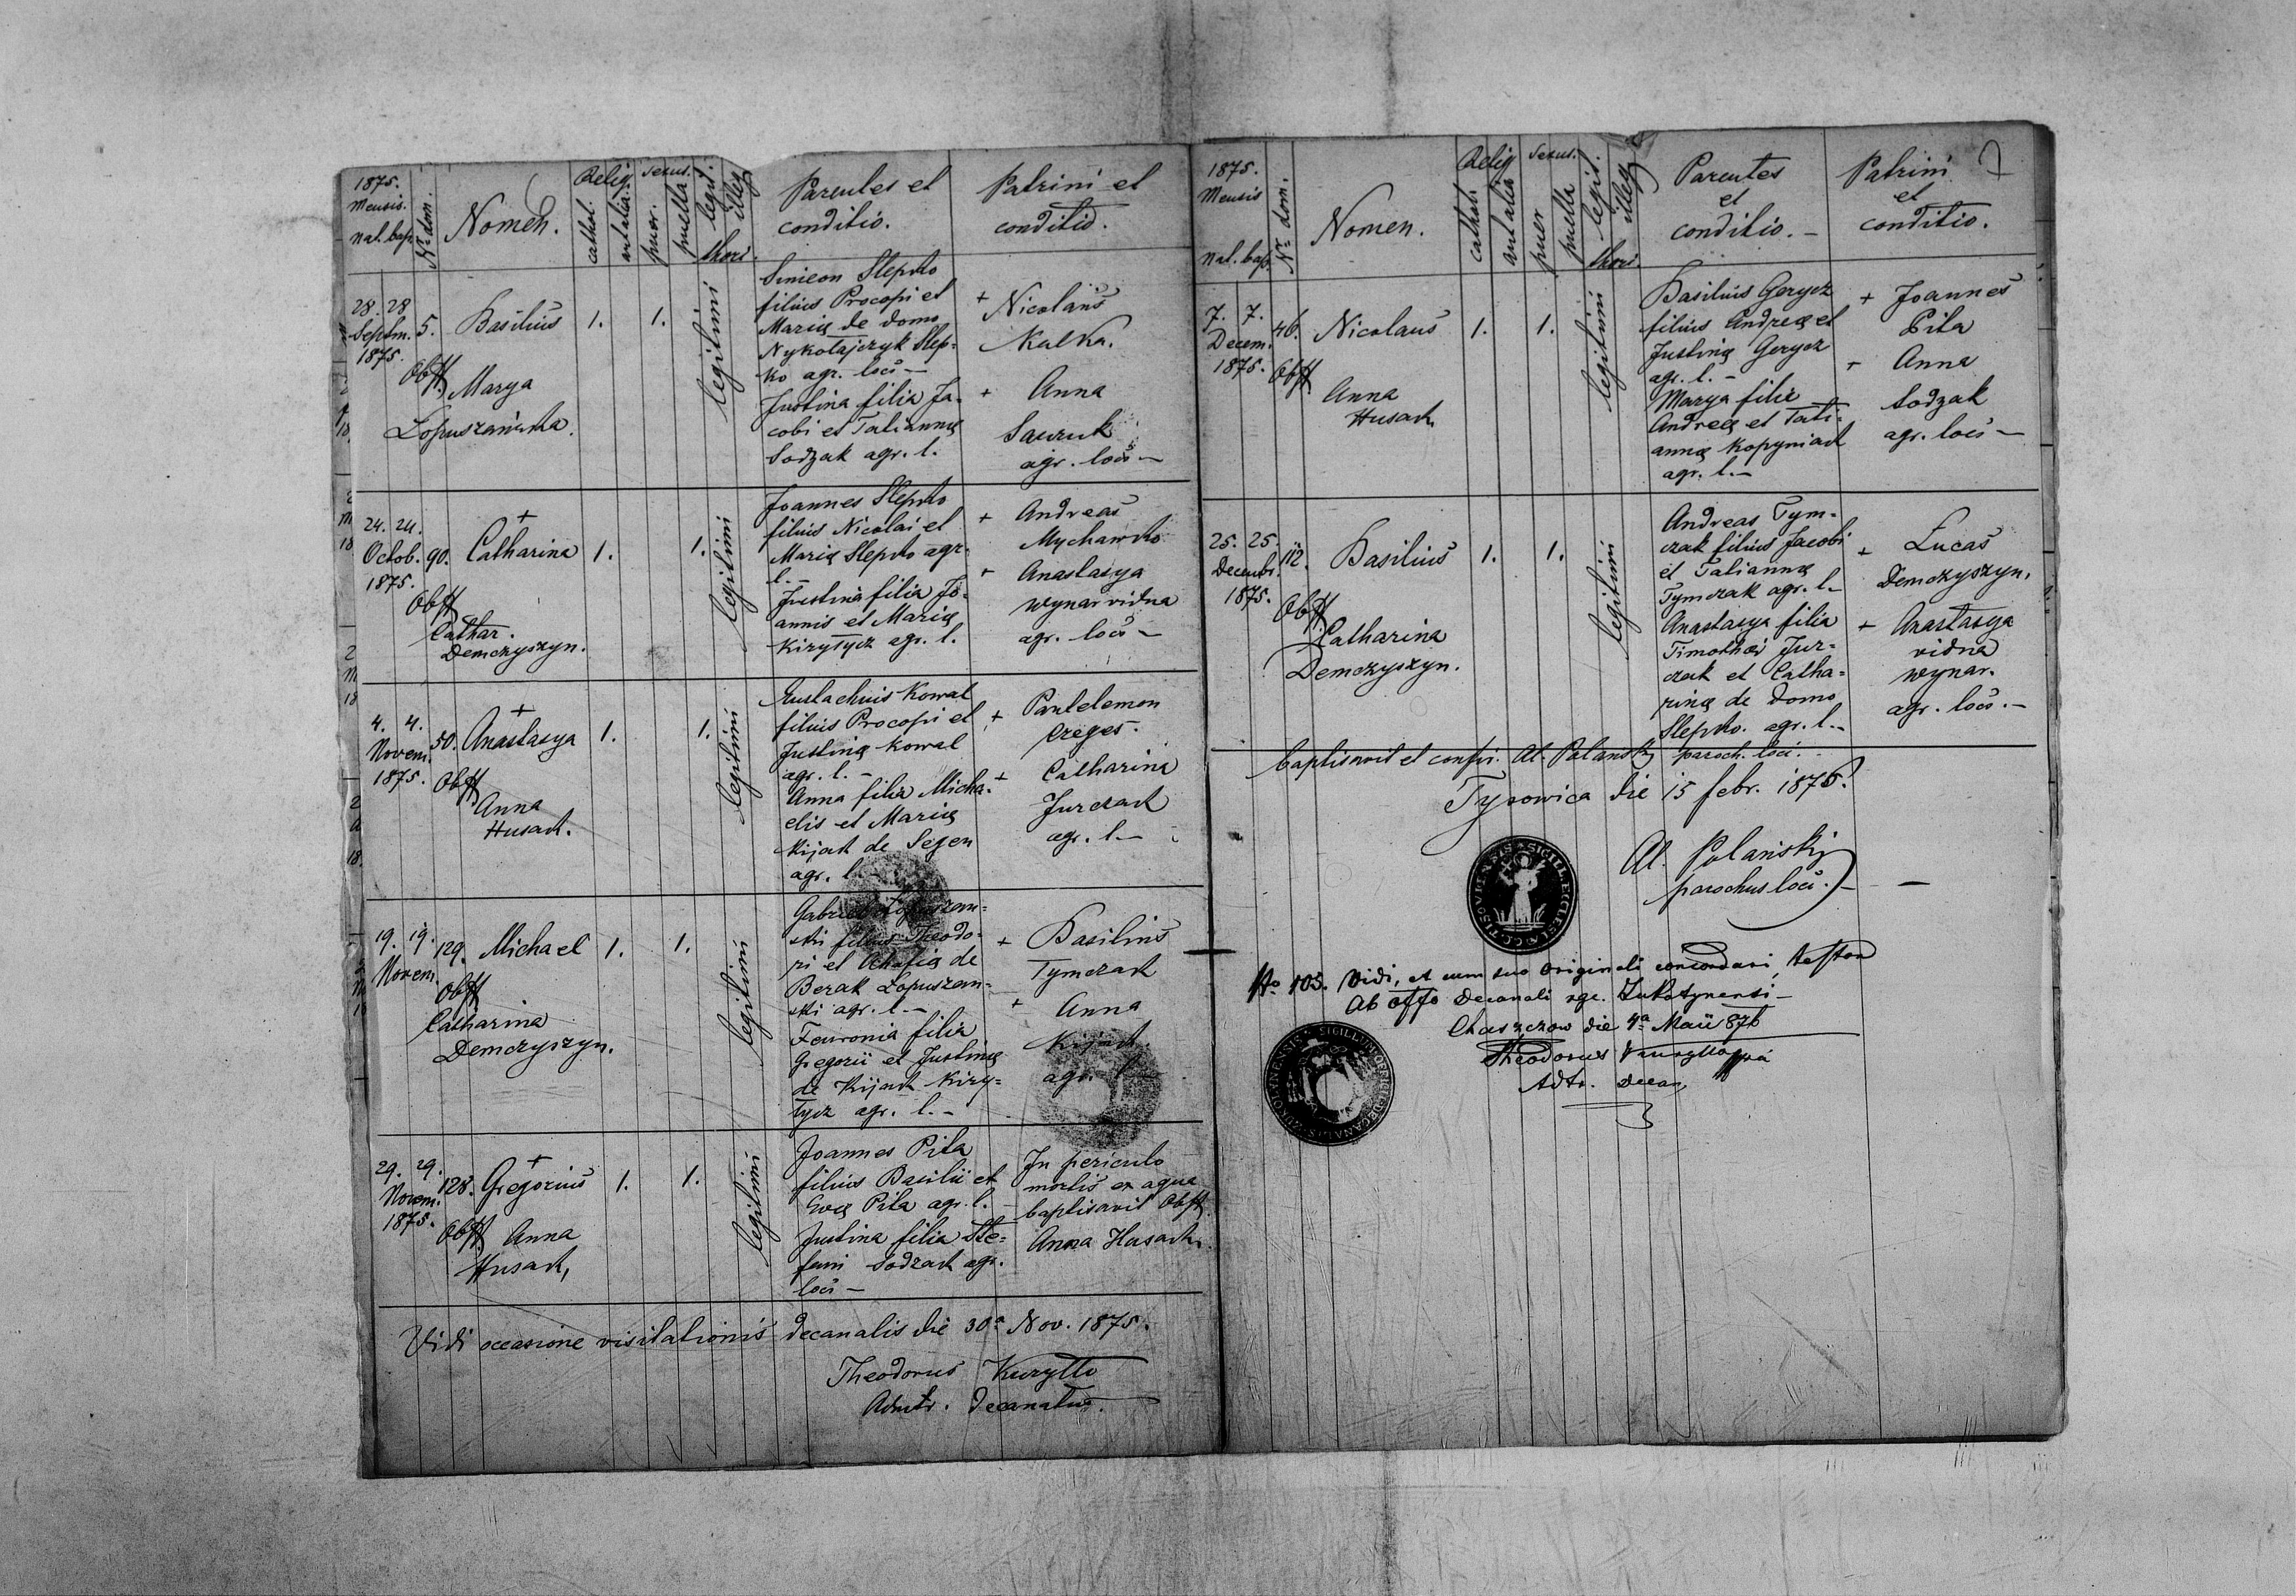 1875.
Mensis.
nat. bap.
Nr. dom.
Nomen.
Relig.
cathol.
aut alia.
Sexus.
puer.
puella
legit.
illeg.
thori.
Parentes et
conditio.
Patrini et
conditio.
28. 28
Septem.
1875.
5.
Basilius
1.
1.
legitimi
Obst.
Marya
Lopuszańska.
Simeon Slepko
filius Procopi et
Mariæ de domo
Nykołajczyk Slep-
ko agr. loci —
Justina filia Ja-
cobi et Tatiannæ
Sodzak agr. l.
+ Nicolaus
Kulka.
+ Anna
Sawruk
agr. loci —
24. 24.
Octob.
1875.
90.
+
Catharina
1.
1.
legitimi
Obst
Cathar.
Demczyszyn.
Joannes Slepko
filius Nicolai et
Mariæ Slepko agr.
l. —
Justina filia Jo-
annis et Mariæ
Kiryłycz agr. l.
+ Andreas
Mychawko
+ Anastasya
wynar vidua
agr. loci —
4. 4.
Novem.
1875.
50.
+
Anastasya
1.
1.
legitimi
Obst
Anna
Husak.
Eustachius Kowal
filius Procopi et
Justinæ Kowal
agr. l. —
Anna filia Micha-
elis et Mariæ
Kijak de
agr. l. —
+ Pantelemon
Czeges.
+ Catharina
Jurczak
agr. l. —
19. 19.
Novem.
129.
Michael
1.
1.
legitimi
Obst
Catharina
Demczyszyn.
Gabriel Lopuszan-
ski filius Theodo-
ri et Ahafiæ de
Berak Lopuszan-
ski agr. l. —
Fewronia filia
Gregorii et Justinæ
de Kijak Kiry-
łycz agr. l. —
+ Basilius
Tymczak
+ Anna
Kijak.
agr. l —
29. 29.
Novem.
1875.
128.
+
Gregorius
1.
1.
legitimi
Obst Anna
Husak,
Joannes Pita
filius Basilii et
Evæ Pita agr. l. —
Justina filia Ste-
fani Sodzak agr.
loci —
In periculo
mortis ex aqua
baptisavit Obst.
Anna Husak.
Vidi occasione visitationis decanalis die 30ª Nov. 1875.
Theodorus Kuryłło
Admtr. decanatus.
7
1875.
Mensis
nat. bap.
Nr. dom.
Nomen.
Relig
cathol.
aut alia
Sexus.
puer
puella
legit.
illeg.
thori.
Parentes
et
conditio. —
Patrini
et
conditio.
7. 7.
Decem.
1875.
46.
Nicolaus
1.
1.
legitimi
Obst
Anna
Husak
Basilius Gerycz
filius Andreæ et
Justinæ Gerycz
agr. l. —
Marya filia
Andreæ et Tati-
annæ Kopyniak
agr. l. —
+ Joannes
Pita
+ Anna
Sodzak
agr. loci —
25. 25.
Decembr.
1875.
112.
Basilius
1.
1.
legitimi
Obst
Catharina
Demczyszyn.
Andreas Tym-
czak filius Jacobi
et Tatiannæ
Tymczak agr. l. —
Anastasya filia
Timothæi Jur-
czak et Catha-
rinæ de domo
Slepko. agr. l. —
+ Lucas
Demczyszyn,
+ Anastasya
vidua
wynar.
agr. loci. —
baptisavit et confir. Al. Polański paroch. loci.
Tysowica die 15 febr. 1876.
Al. Polański
parochus loci. —
No 105. Vidi, et cum suo originali concordari, testor
Ab offo Decanali rgc. Żukotynensi —
Chaszczow die 4ª Maii 876
Theodorus Kuryłło mpria
Adtr. decan,